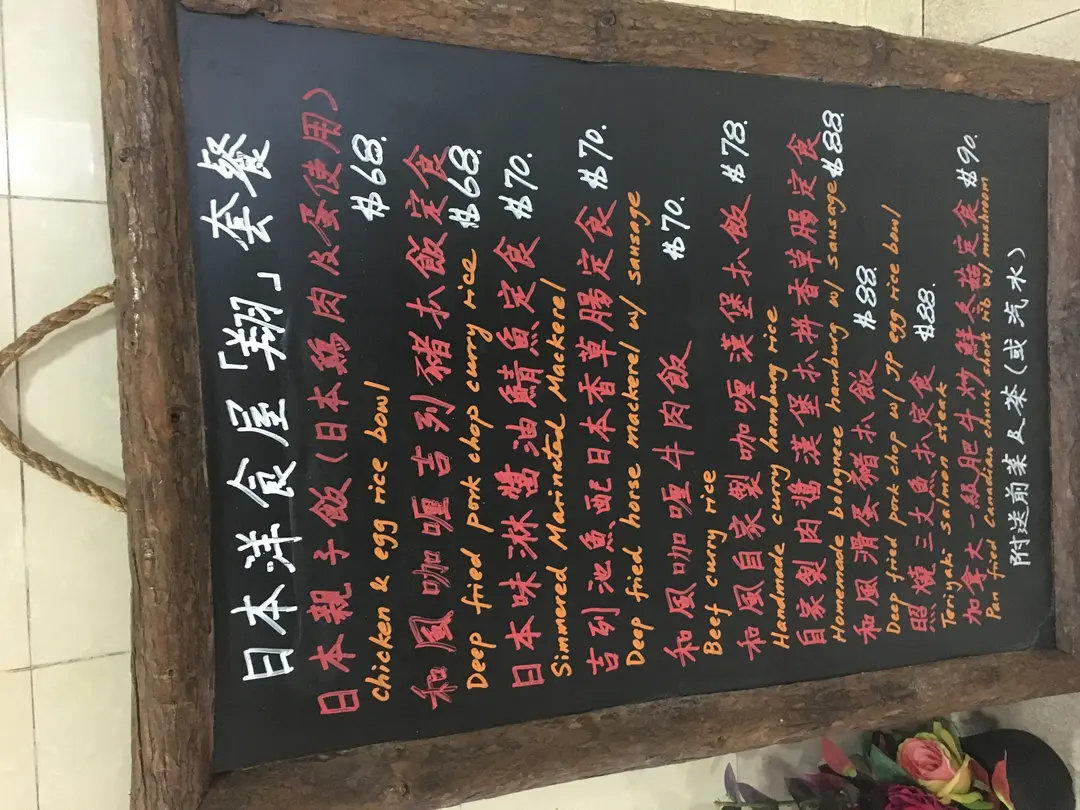 日本洋食屋「翔」套餐
日本親子飯(日本鷄肉及蛋使用)
chicken & egg rice bowl $68.
和風咖喱吉列豬扒飯定食
Deep fried pork chop curry rice $68.
日本味淋醬油鯖魚定食 $70.
Simmered Marinated Mackerel
吉列池魚配日本香草腸定食 $70.
Deep fried horse mackerel w/ sausage
和風咖喱牛肉飯 $70.
Beef curry rice
和風自家製咖喱漢堡扒飯 $78.
Handmade curry hamburg rice
自家製肉醬漢堡扒拼香草腸定食
Homemade bolognese hamburg w/ sausage $88.
和風滑蛋豬扒飯 $88.
Deep fried pork chop w/ JP egg rice bowl
照燒三文魚扒定食 $88.
Teriyaki salmon steak
加拿大一級肥牛炒鮮冬菇定食 $90.
Pan fried Canadian chuck short rib w/ mushroom
附送前菜及茶(或汽水)